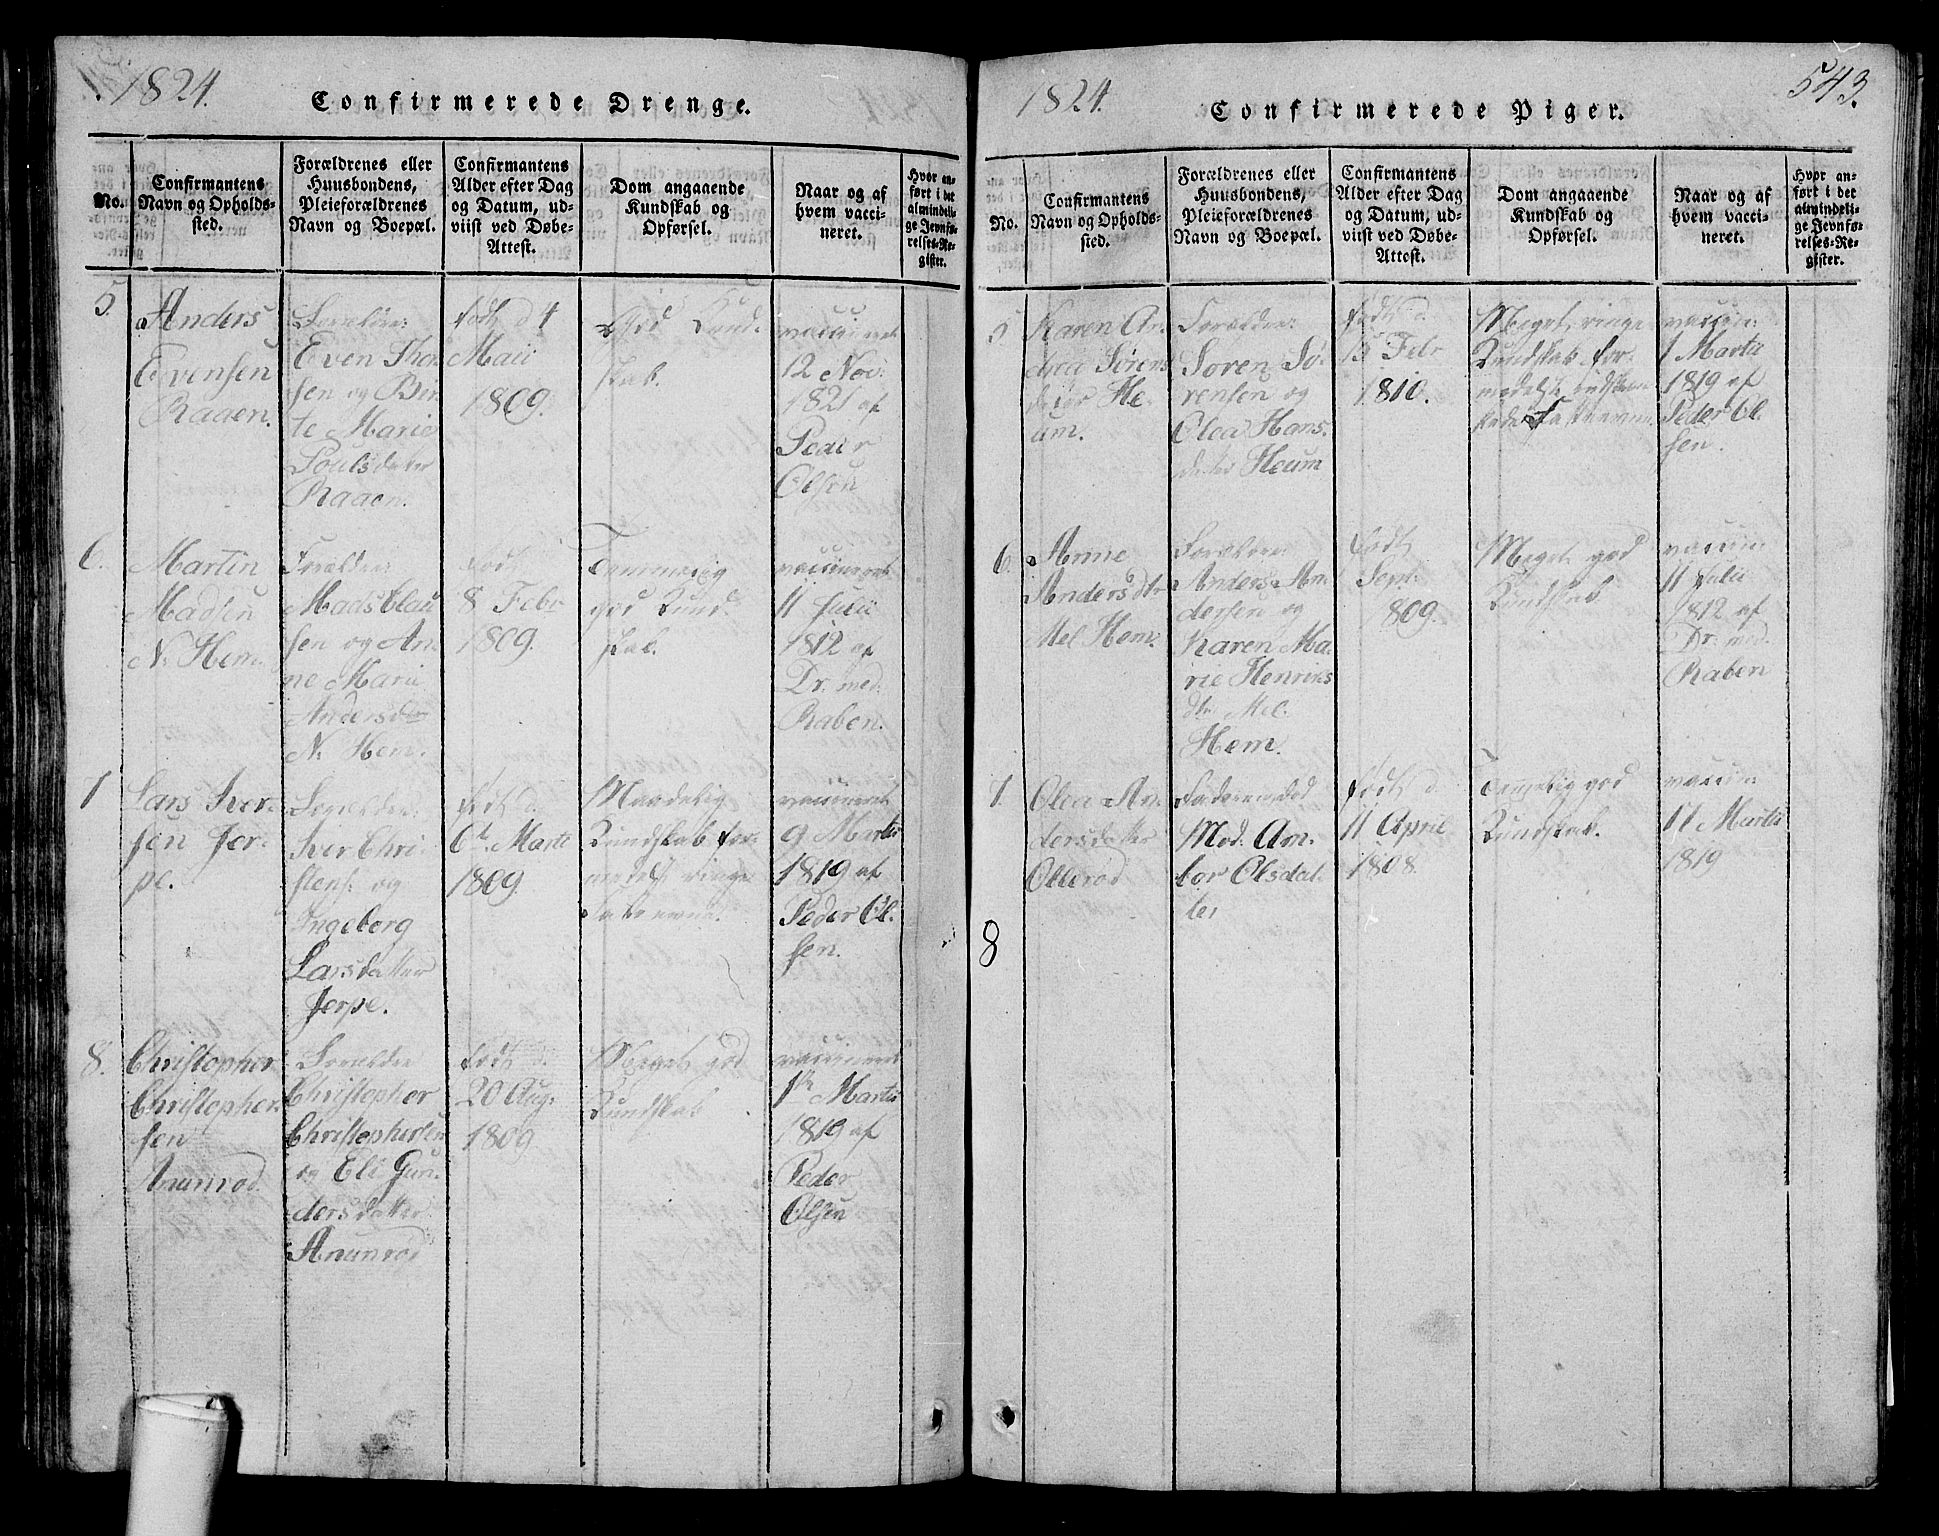 1824.
Confirmerede Drenge.
No.
Confirmantens
Navn og Opholds-
sted.
Forældrenes eller
Huusbondens,
Pleieforældrenes
Navn og Boepæl.
Confirmantens
Alder efter Dag
og Datum, ud-
viist ved Døbe-
Attest.
Dom angaaende
Kundskab og
Opførsel.
Naar og af
hvem vacci-
neret.
Hvor an-
ført i det
almindeli-
ge Jevnfø-
relses-Re-
gister.
5.
Anders
Evensen
Raaen.
Forældre:
Even Thor
sen og Bir
te Marie
Poulsdatter
Raaen.
født d 4
Maii
1809.
God Kund-
skab.
vaccineret
12 Nov:
1821 af
Peder
Olsen
6.
Martin
Madsen
N: Hem.
Forældre:
Mads Clau
sen og An-
ne Marie
Andersdatter
N: Hem.
født
8 Febr
1809.
Temmelig
god Kund-
skab.
vaccineret
11 Julii
1812 af
Dr: med:
Raben.
7
Lars Iver-
sen Jer-
pe.
Forældre:
Iver Chri-
stens: og
Ingeborg
Larsdatter
Jerpe.
født d.
6t Marti
1809.
Maadelig
Kundskab for-
medelst ringe
Fatteevne.
vaccineret
9 Martii
1819 af
Peder Ol-
sen.
8.
Christopher
Christopher-
sen
Anumrød.
Forældre
Christopher
Christophersen
og Eli Gun-
dersdatter
Anumrød
født d.
20 Aug.
1809
Meget god
Kundskab
vaccineret
1te Martii
1819 af
Peder
Olsen
1824.
Confirmerede Piger.
543.
No.
Confirmantens
Navn og Opholds-
sted.
Forældrenes eller
Huusbondens,
Pleieforældrenes
Navn og Boepæl.
Confirmantens
Alder efter Dag
og Datum, ud-
viist ved Døbe-
Attest.
Dom angaaende
Kundskab og
Opførsel.
Naar og af
hvem vacci-
neret.
Hvor an-
ført i det
almindeli-
ge Jevnfø-
relses-Re-
gister.
5
Karen An-
drea Sørens
datter He-
um.
Forældre:
Søren Sø-
rensen og
Olea Hans-
datter Heum
født d.
15 Febr
1810.
Meget ringe
Kundskab for-
medelst
Fatteevne
vaccin:
1 Martii
1819 af
Peder Ol-
sen.
6.
Anne
Andersdtr
Mel Hem.
Forældre:
Anders An-
dersen og
Karen Ma-
rie Henriks
dtr Mel.
Hem.
født
Sept:
809.
Meget god
Kundskab
vaccin:
11 Julii
1812 af
Dr: med
Raben
7.
Olea An-
dersdatter
Ollerød
Faderen død
Mod: Am-
bor Olsdat-
ter
født d.
11 April
1808.
Temmelig god
Kundskab.
vaccin
17 Martii
1819
8